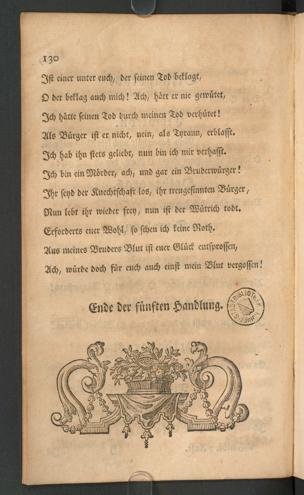 130
Ist einer unter euch, der seinen Tod beklagt,
O der beklag auch mich! Ach, hätt er nie gewütet,
Ich hätte seinen Tod durch meinen Tod verhütet!
Als Bürger ist er nicht, nein, als Tyrann, erblasst.
Ich hab ihn stets geliebt, nun bin ich mir verhasst.
Ich bin ein Mörder, ach, und gar ein Bruderwürger!
Ihr seyd der Knechtschaft los, ihr treugesinnten Bürger,
Nun lebt ihr wieder frey, nun ist der Wütrich todt.
Erforderts euer Wohl, so scheu ich keine Noth.
Aus meines Bruders Blut ist euer Glück entsprossen,
Ach, würde doch für euch auch einst mein Blut vergossen!
Ende der fünften Handlung.